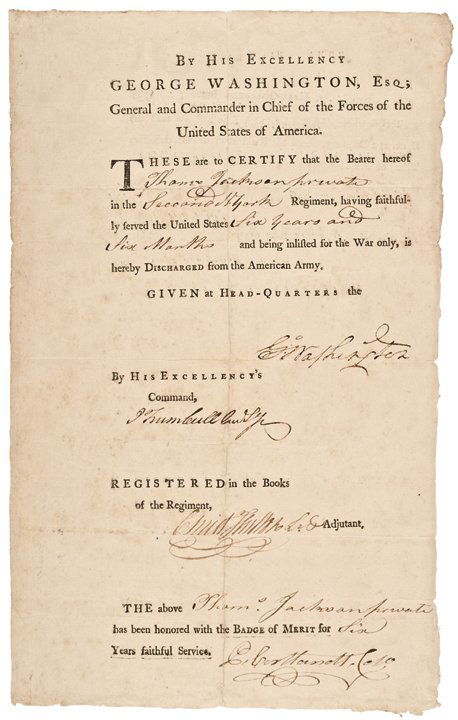 BY HIS EXCELLENCY
GEORGE WASHINGTON, ESQ;
General and Commander in Chief of the Forces of the
United States of America.
THESE are to CERTIFY that the Bearer hereof
Thomˢ Jackson private
in the Second NYork Regiment, having faithful-
ly served the United States Six Years and
Six Months and being inlisted for the War only, is
hereby DISCHARGED from the American Army.
GIVEN at HEAD-QUARTERS the
Gº Washington
By HIS EXCELLENCY'S
Command,
J Trumbull Junr Sy
REGISTERED in the Books
of the Regiment,
Adjutant.
THE above Thomˢ. Jackson private
has been honored with the BADGE of MERIT for Six
Years faithful Service. P. Cortlandt. Colo